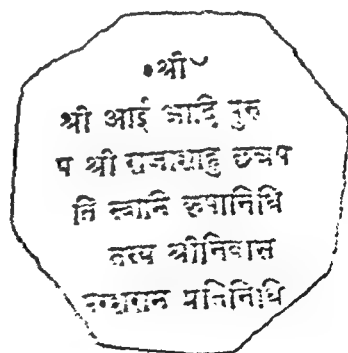 श्री
श्री आई आदि पुरु
ष श्री राजाशाहु छत्रप
ति स्वामि कृपानिधि
तस्य श्रीनिवास
परशुराम प्रतिनिधि